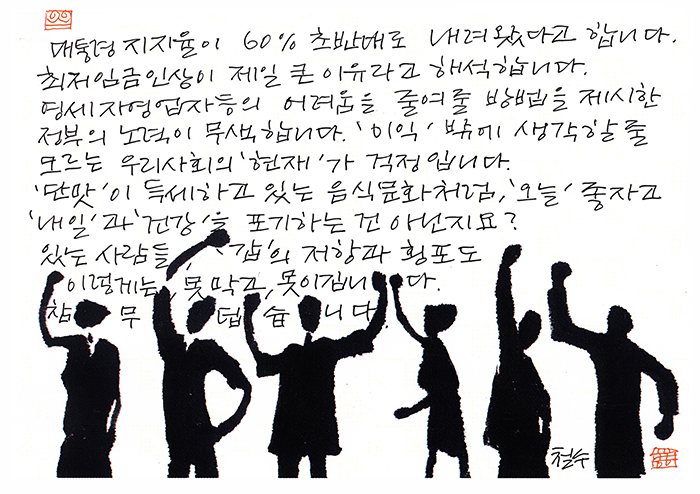 대통령 지지율이 60% 초반대로 내려왔다고 합니다.
최저임금인상이 제일 큰 이유라고 해석합니다.
영세자영업자들의 어려움을 줄여줄 방법을 제시한
정부의 노력이 무색합니다. '이익' 밖에 생각할 줄
모르는 우리사회의 '현재'가 걱정입니다.
'단맛'이 득세하고 있는 음식문화처럼, '오늘' 좋자고
'내일'과 '건강'을 포기하는 건 아닌지요?
있는 사람들, '갑'의 저항과 횡포도
이렇게는, 못 막고, 못이깁니다.
참 무덥습니다.
철수